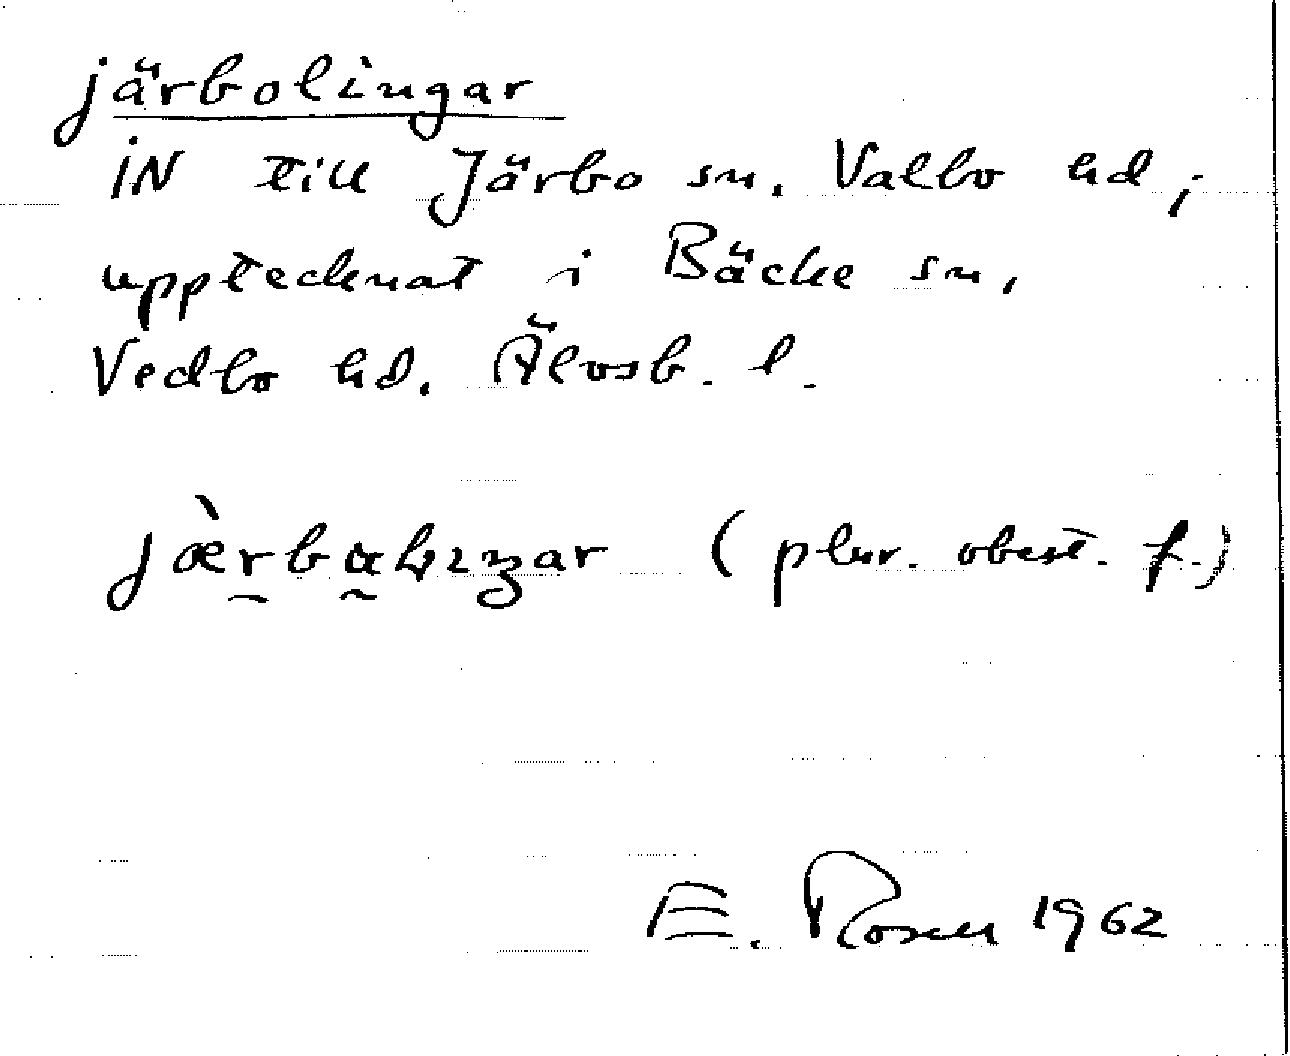 järbolingar
iN till Järbo sn. Valbo hd,
upptecknat i Bäcke sn,
Vedbo hd. Älvsb. l.
(plur. obest. f.)
E. Rosen 1962